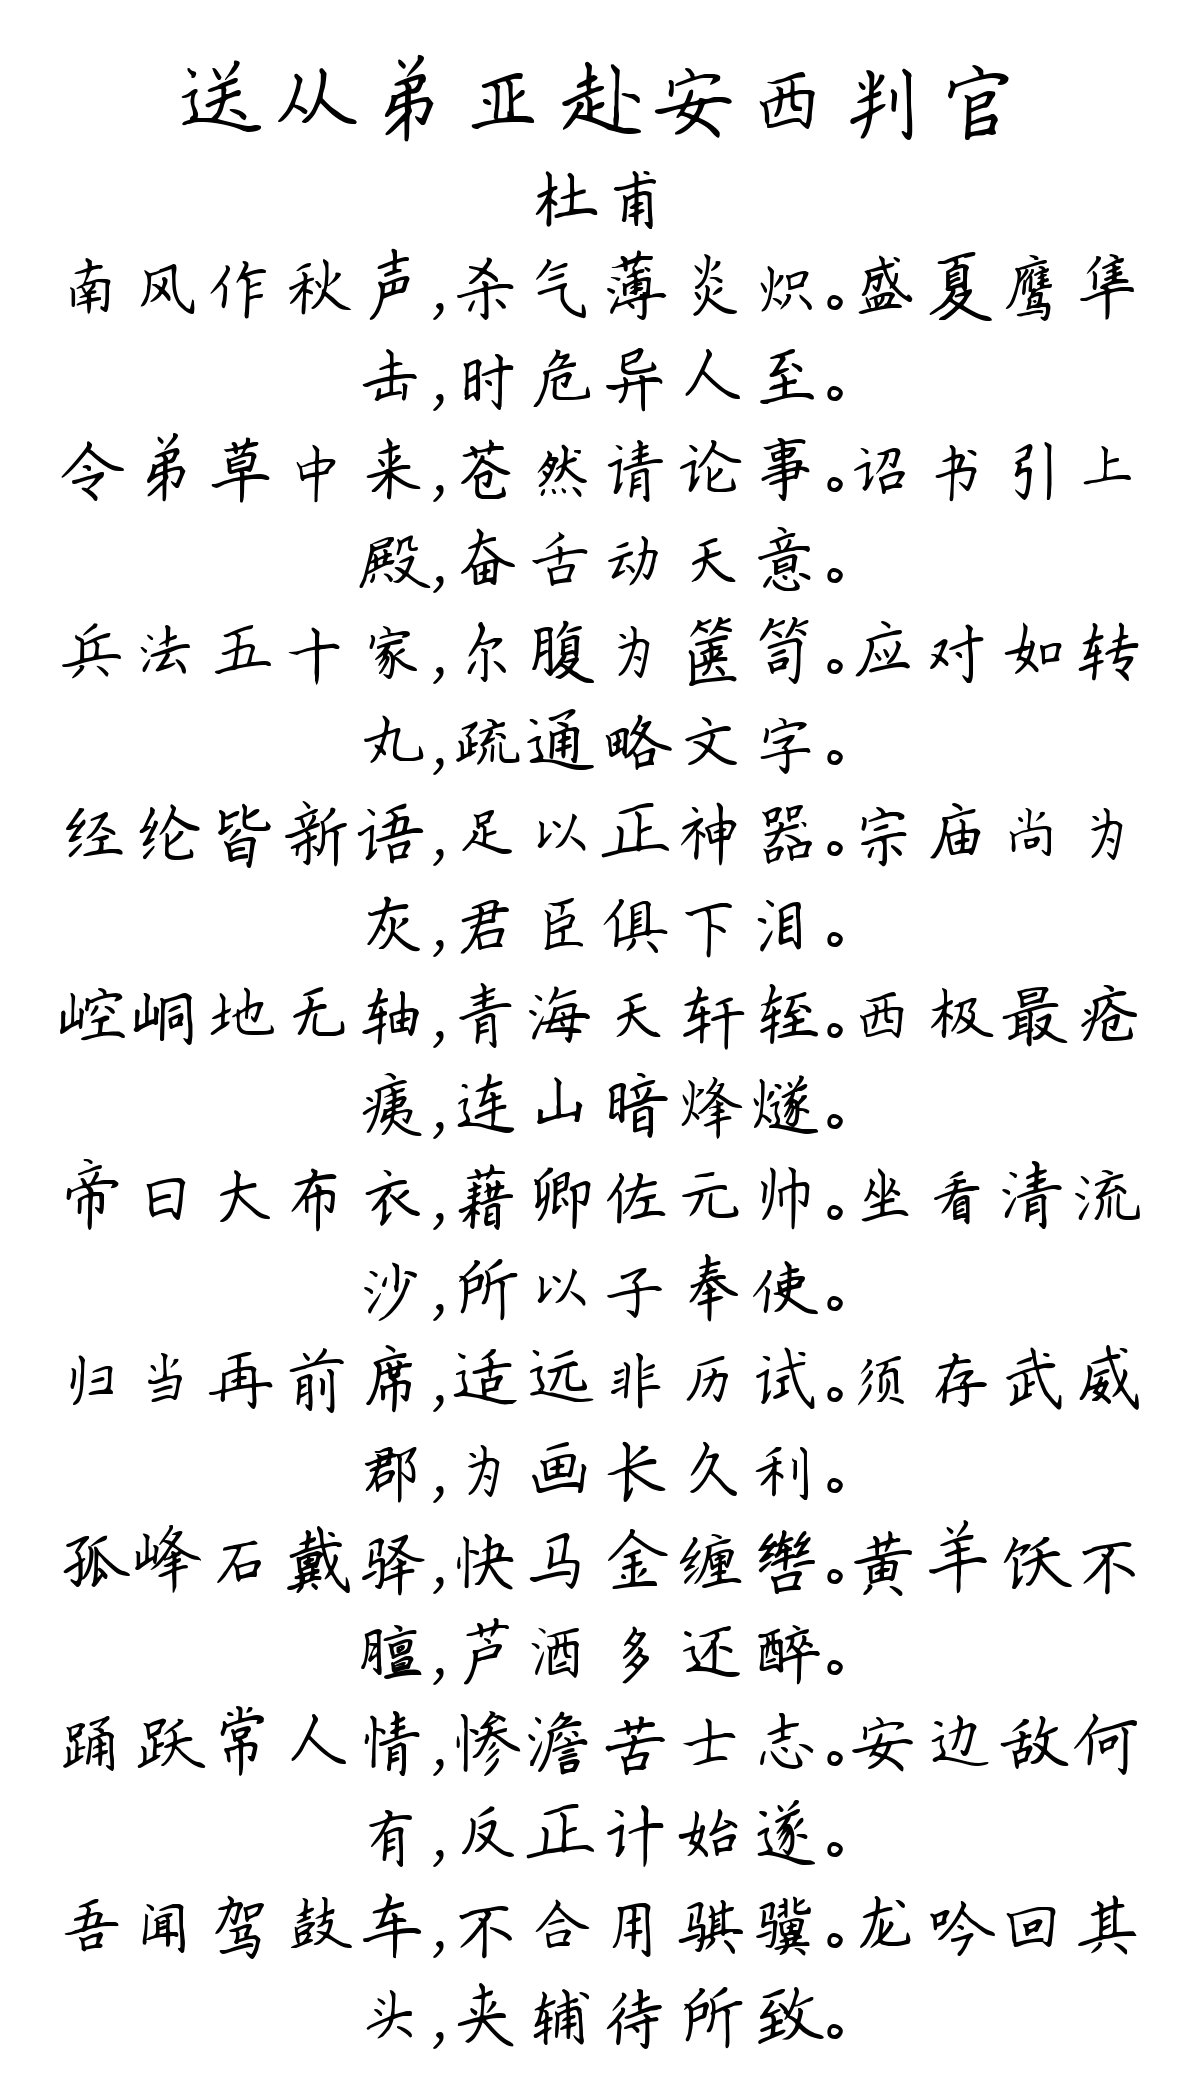 送从弟亚赴安西判官
杜甫
南风作秋声,杀气薄炎炽。盛夏鹰隼
击,时危异人至。
令弟草中来,苍然请论事。诏书引上
殿,奋舌动天意。
兵法五十家,尔腹为箧笥。应对如转
丸,疏通略文字。
经纶皆新语,足以正神器。宗庙尚为
灰,君臣俱下泪。
崆峒地无轴,青海天轩轾。西极最疮
痍,连山暗烽燧。
帝曰大布衣,藉卿佐元帅。坐看清流
沙,所以子奉使。
归当再前席,适远非历试。须存武威
郡,为画长久利。
孤峰石戴驿,快马金缠辔。黄羊饫不
膻,芦酒多还醉。
踊跃常人情,惨澹苦士志。安边敌何
有,反正计始遂。
吾闻驾鼓车,不合用骐骥。龙吟回其
头,夹辅待所致。